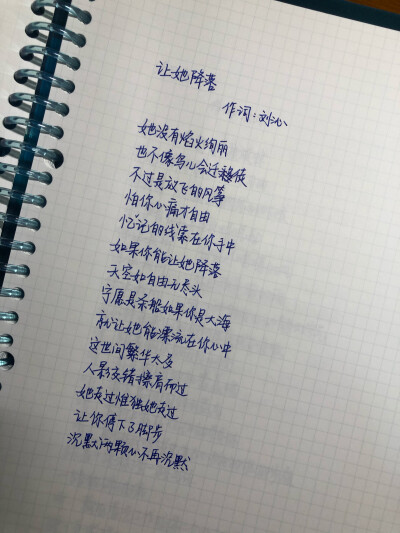 让她降落
作词：刘沁
她没有焰火绚丽
也不像鸟儿会迁移使
不过是放飞的风筝
怕你心痛才自由
忆记的线索在你手中
如果你能让她降落
天空如自由无尽头
宁愿是杀船如果你是大海
就让她能漂流在你心中
这世间繁华太多
人影交错擦肩而过
她友过惟独她友过
让你停下了脚步
沉默两颗心不再沉默